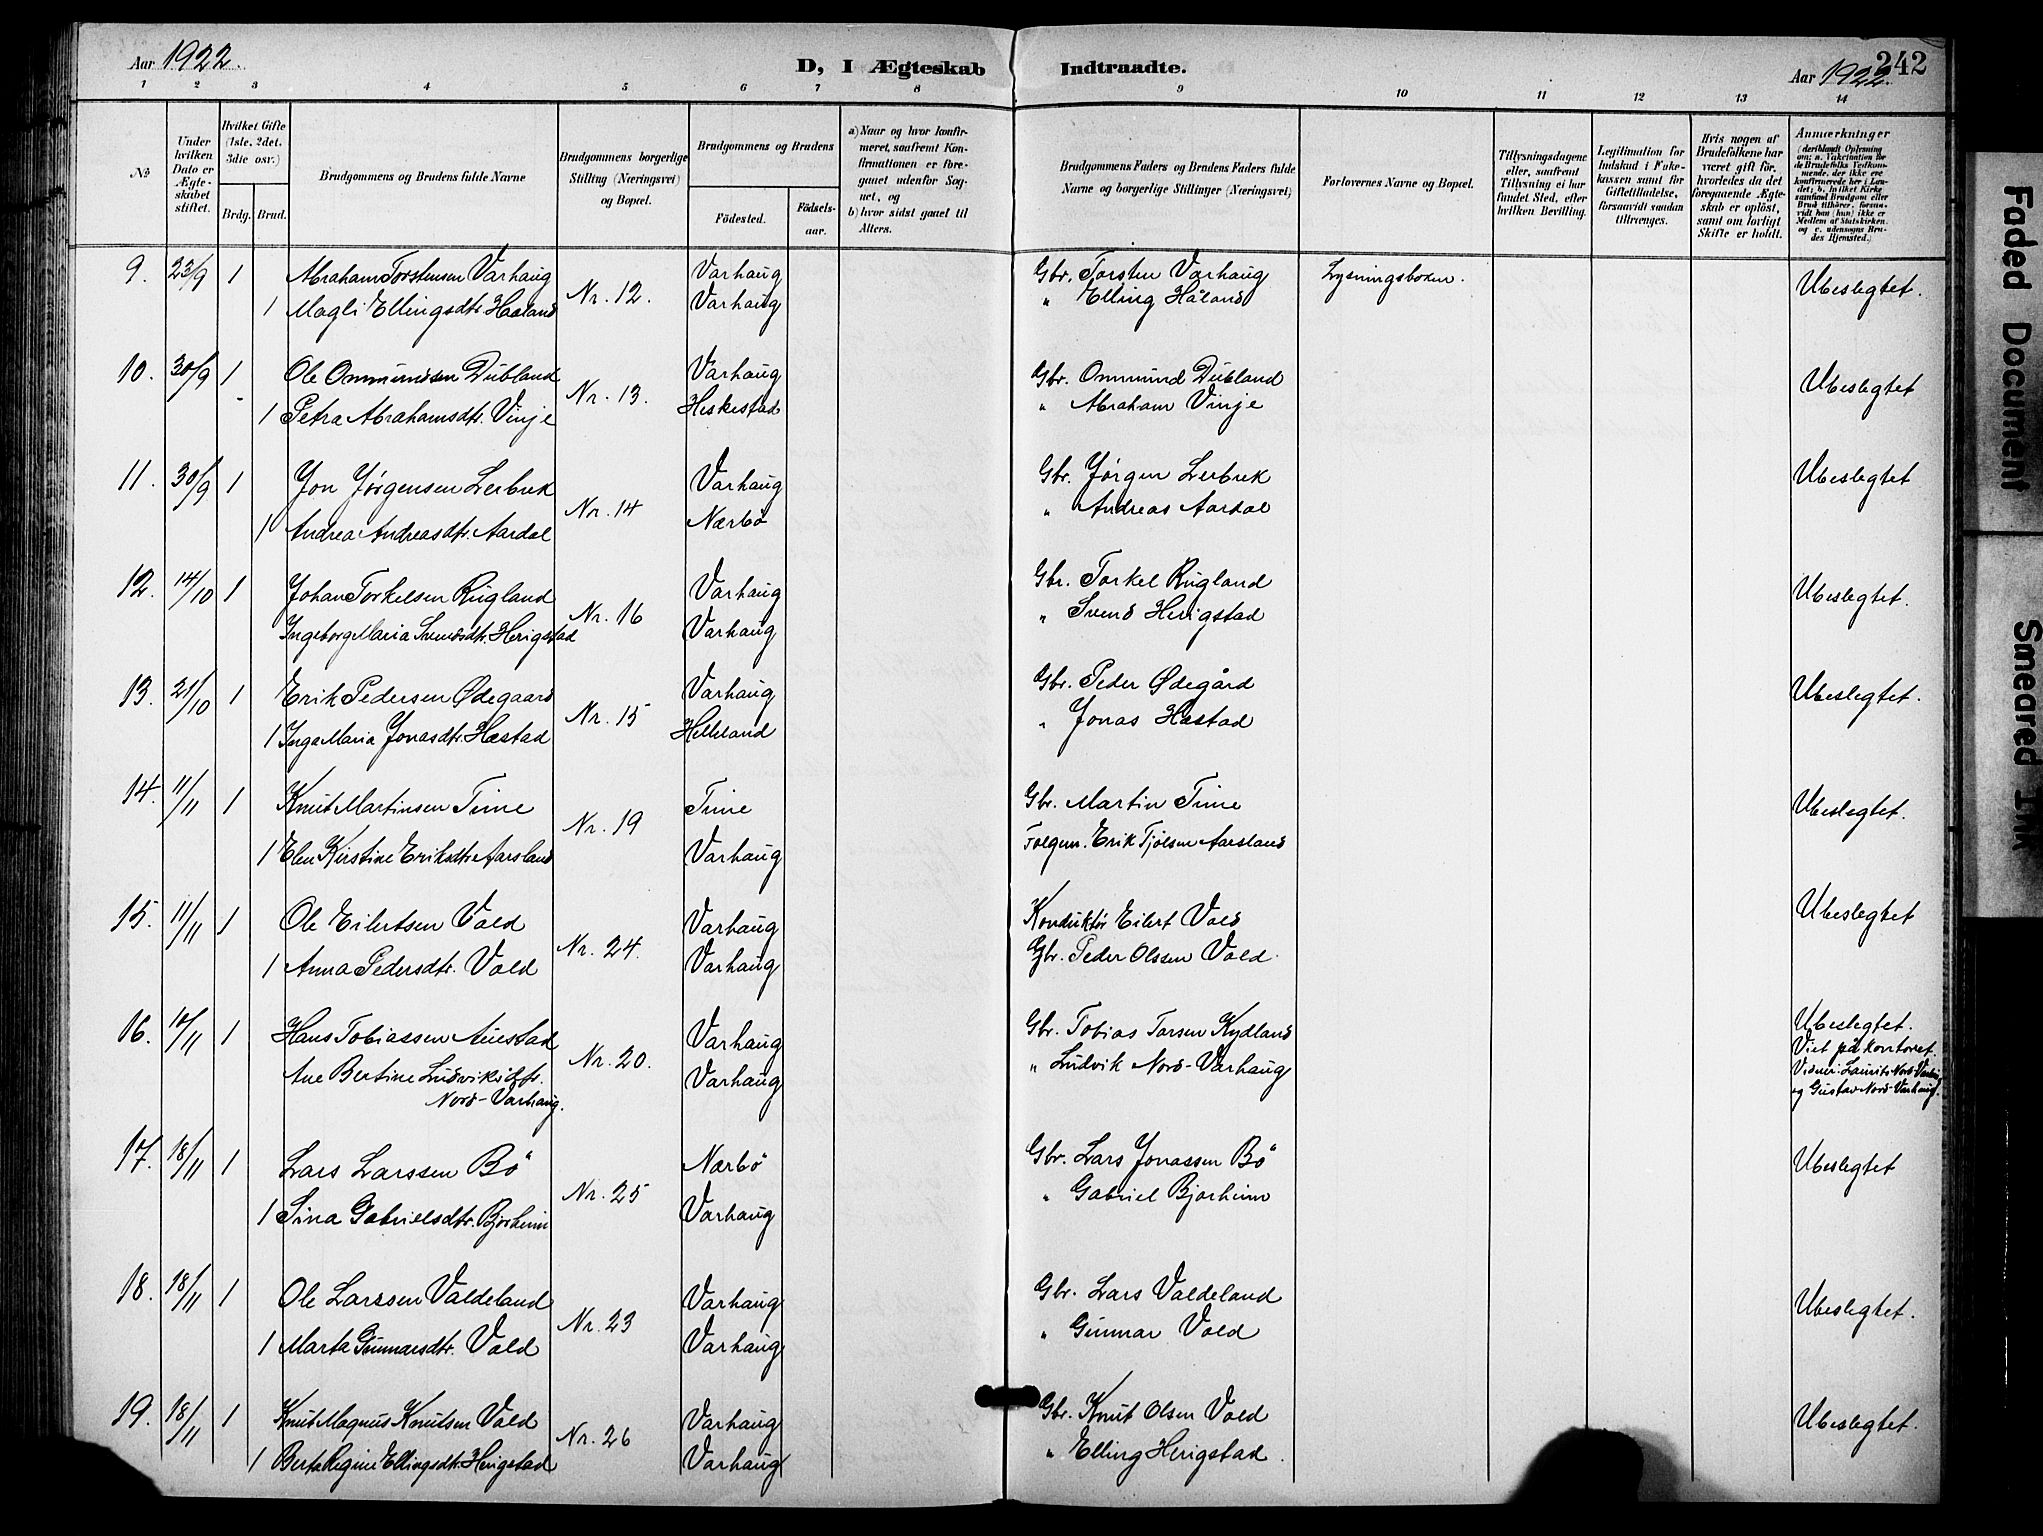 Aar 1922.
D, I Ægteskab Indtraadte.
242
Aar 1922.
1 2 3 4 5 6 7 8 9 10 11 12 13 14
№
Under hvilken Dato er Ægteskabet stiftet.
Hvilket Gifte (1ste, 2det, 3die osv.)
Brdg. Brud.
Brudgommens og Brudens fulde Navne
Brudgommens borgerlige Stilling (Næringsvei) og Bopæl.
Brudgommens og Brudens
Födested. Födsels-aar.
a) Naar og hvor konfirmeret, saafremt Konfirmationen er foregaaet udenfor Sognet, og
b) hvor sidst gaaet til Alters.
Brudgommens Faders og Brudens Faders fulde Navne og borgerlige Stillinger (Næringsvei)
Forlovernes Navne og Bopæl.
Tillysningsdagene eller, saafremt Tillysning ei har fundet Sted, efter hvilken Bevilling.
Legitimation for Indskud i Enkekassen samt for Giftetilladelse, forsaavidt saadan tiltrænges.
Hvis nogen af Brudefolkene har været gift för, hvorledes da det foregaaende Ægteskab er oplöst, samt om lovligt Skifte er holdt.
Anmærkninger
9. 23/9 1 Abraham Torstensen Varhaug Nr. 12. Varhaug Gbr. Torsten Varhaug Lysningsboken. Ubeslegtet.
1 Magli Ellingsdtr. Haaland Varhaug " Elling Håland
10. 30/9 1 Ole Ommundsen Dubland Nr. 13. Varhaug Gbr. Ommund Dubland Ubeslegtet
1 Petra Abrahamsdtr. Vinje Heskestad " Abraham Vinje
11. 30/9 1 Jon Jørgensen Lerbrek Nr. 14 Varhaug Gbr. Jørgen Lerbrek Ubeslegtet
1 Andrea Andreasdtr. Aardal Nærbö " Andreas Aardal
12. 14/10 1 Johan Torkelsen Rugland Nr. 16 Varhaug Gbr. Torkel Rugland Ubeslegtet.
Ingeborg Maria Svendsdtr. Herigstad Varhaug " Svend Herigstad
13. 21/10 1 Erik Pedersen Ødegaard Nr. 15 Varhaug Gbr. Peder Ødegård Ubeslegtet.
1 Inga Maria Jonasdtr. Hæstad Helleland " Jonas Hæstad
14. 11/11 1 Knut Martinsen Time Nr. 19 Time Gbr. Martin Time Ubeslegtet.
1 Elen Kirstine Eriksdtr. Aarsland Varhaug Erik Tjølsen Aarsland
15. 11/11 1 Ole Eilertsen Vold Nr. 24. Varhaug Konduktør Eilert Vold Ubeslegtet
1 Anna Pedersdtr. Vold Varhaug Gbr. Peder Olssen Vold.
16. /11 1 Hans Tobiassen Auestad Nr. 20. Varhaug Gbr. Tobias Torsen Kydland Ubeslegtet.
Ane Bertine Ludviksdtr. Nord-Varhaug. Varhaug " Ludvik Nord-Varhaug Viet på kontoret.
Vidner: Laurits Nord-Varhaug
og Gustav Nord-Varhaug.
17. 18/11 1 Lars Larssen Bö Nr. 25 Nærbö Gbr. Lars Jonassen Bö Ubeslegtet
1 Sina Gabrielsdtr. Bjorheim Varhaug " Gabriel Bjorheim
18. 18/11 1 Ole Larssen Valdeland Nr. 23 Varhaug Gbr. Lars Valdeland Ubeslegtet.
1 Marta Gunnarsdtr. Vold Varhaug " Gunnar Vold
19. 18/11 1 Knut Magnus Knutsen Vold Nr. 26 Varhaug Gbr. Knut Olsen Vold Ubeslegtet.
1 Berta Regine Ellingsdtr. Herigstad Varhaug " Elling Herigstad.
Faded Document
Smeared Ink